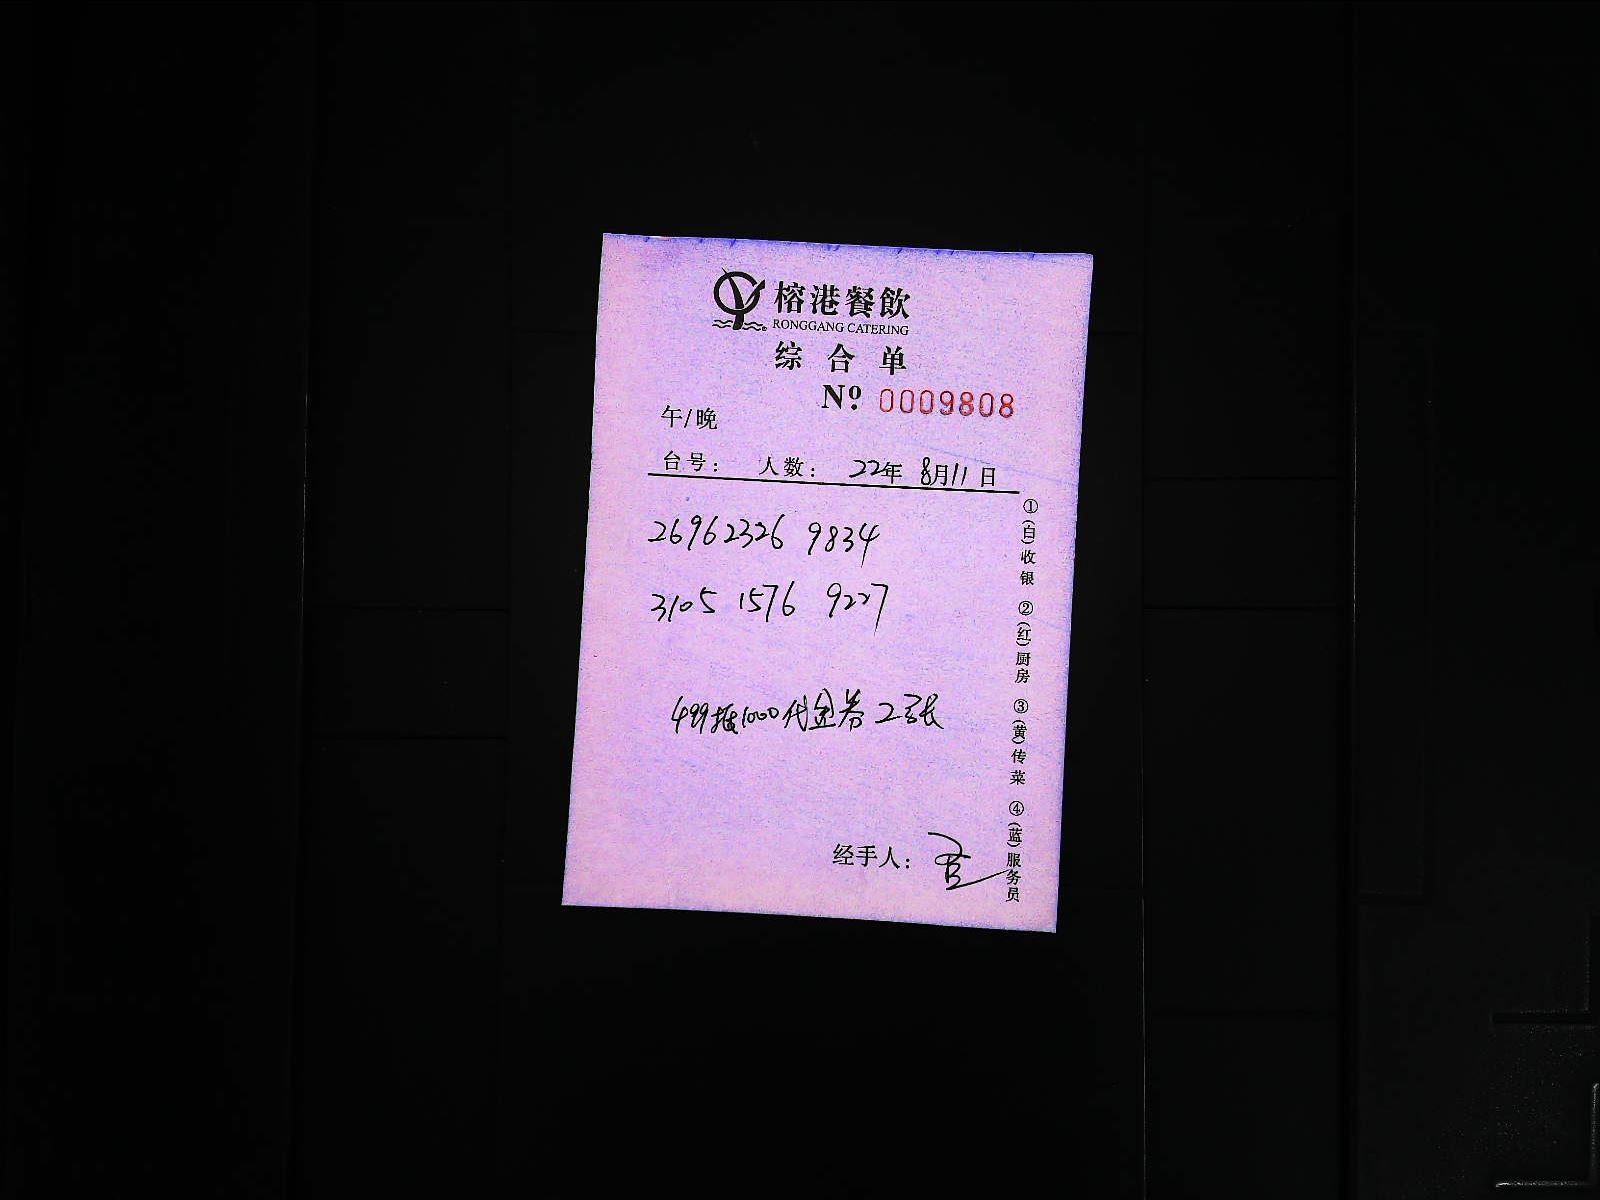 榕港餐飲
RONGGANG CATERING
综合单
Nº: 0009808
午/晚
台号： 人数： 22年 8月11日
26962326 9834
3105 1576 9227
499抵1000代金券2张
经手人：
①(白)收银 ②(红)厨房 ③(黄)传菜 ④(蓝)服务员